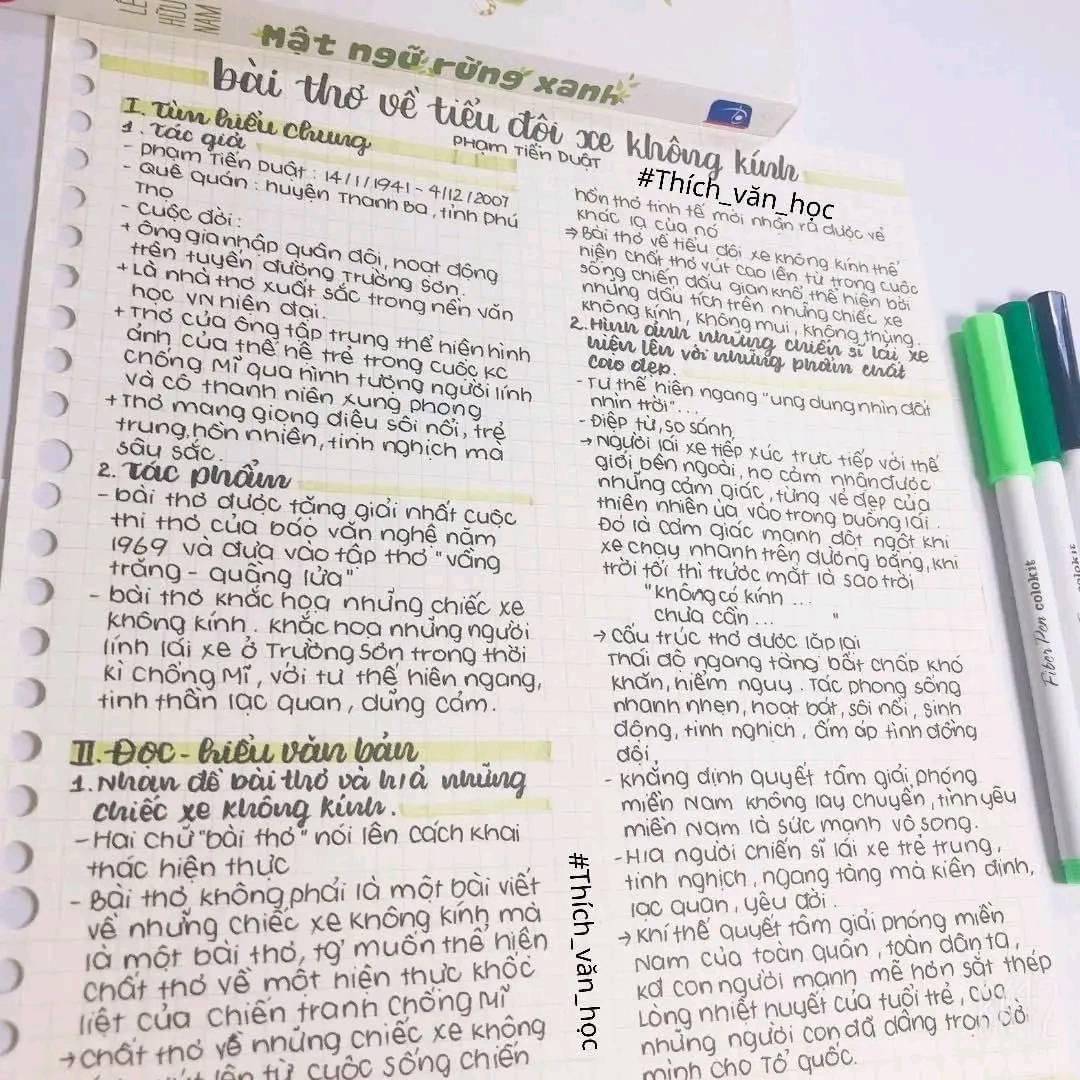 LÊ
HỮU
NAM
Mật ngữ rừng xanh
bài thơ về tiểu đội xe không kính
Phạm Tiến Duật
#Thích_văn_học
I. Tìm hiểu chung
1. Tác giả
- Phạm Tiến Duật: 14/1/1941 - 4/12/2007
- Quê quán: huyện Thanh Ba, tỉnh Phú
Thọ
- Cuộc đời:
+ ông gia nhập quân đội, hoạt động
trên tuyến đường Trường Sơn.
+ Là nhà thơ xuất sắc trong nền văn
học VN hiện đại.
+ Thơ của ông tập trung thể hiện hình
ảnh của thế hệ trẻ trong cuộc KC
chống Mĩ qua hình tượng người lính
và cô thanh niên xung phong
+ Thơ mang giọng điệu sôi nổi, trẻ
trung, hồn nhiên, tinh nghịch mà
sâu sắc.
2. Tác phẩm
- bài thơ được tặng giải nhất cuộc
thi thơ của báo văn nghệ năm
1969 và đưa vào tập thơ "vầng
trăng - quầng lửa"
- bài thơ khắc họa những chiếc xe
không kính. khắc họa những người
lính lái xe ở Trường Sơn trong thời
kì chống Mĩ, với tư thế hiên ngang,
tinh thần lạc quan, dũng cảm.
II. Đọc - hiểu văn bản
1. Nhan đề bài thơ và h/ả những
chiếc xe không kính.
- Hai chữ "bài thơ" nói lên cách khai
thác hiện thực
- Bài thơ không phải là một bài viết
về những chiếc xe không kính mà
là một bài thơ, tg' muốn thể hiện
chất thơ về một hiện thực khốc
liệt của chiến tranh chống Mĩ
→ chất thơ về những chiếc xe không
lên từ cuộc sống chiến
hồn thơ tinh tế mới nhận ra được vẻ
khác lạ của nó
⇒ Bài thơ về tiểu đội xe không kính thể
hiện chất thơ vút cao lên từ trong cuộc
sống chiến đấu gian khổ thể hiện bởi
những dấu tích trên những chiếc xe
không kính, không mui, không thùng.
2. Hình ảnh những chiến sĩ lái xe
hiện lên với những phẩm chất
cao đẹp.
- Tư thế hiên ngang "ung dung nhìn đất
nhìn trời"...
- Điệp từ, so sánh,
→ Người lái xe tiếp xúc trực tiếp với thế
giới bên ngoài, họ cảm nhận được
những cảm giác, từng vẻ đẹp của
thiên nhiên ùa vào trong buồng lái.
Đó là cảm giác mạnh đột ngột khi
xe chạy nhanh trên đường bằng, khi
trời tối thì trước mắt là sao trời
"không có kính ...
chưa cần ... "
→ Cấu trúc thơ được lặp lại
Thái độ ngang tàng bất chấp khó
khăn, hiểm nguy. Tác phong sống
nhanh nhẹn, hoạt bát, sôi nổi, sinh
động, tinh nghịch, ấm áp tình đồng
đội,
- khẳng định quyết tâm giải phóng
miền Nam không lay chuyển, tình yêu
miền Nam là sức mạnh vô song.
- H/ả người chiến sĩ lái xe trẻ trung,
tinh nghịch, ngang tàng mà kiên định,
lạc quan, yêu đời.
→ Khí thế quyết tâm giải phóng miền
Nam của toàn quân, toàn dân ta,
con người mạnh mẽ hơn sắt thép
Lòng nhiệt huyết của tuổi trẻ, của
những người con đã dâng trọn đời
mình cho Tổ quốc.
#Thích_văn_học
Fiber Pen colokit
colokit